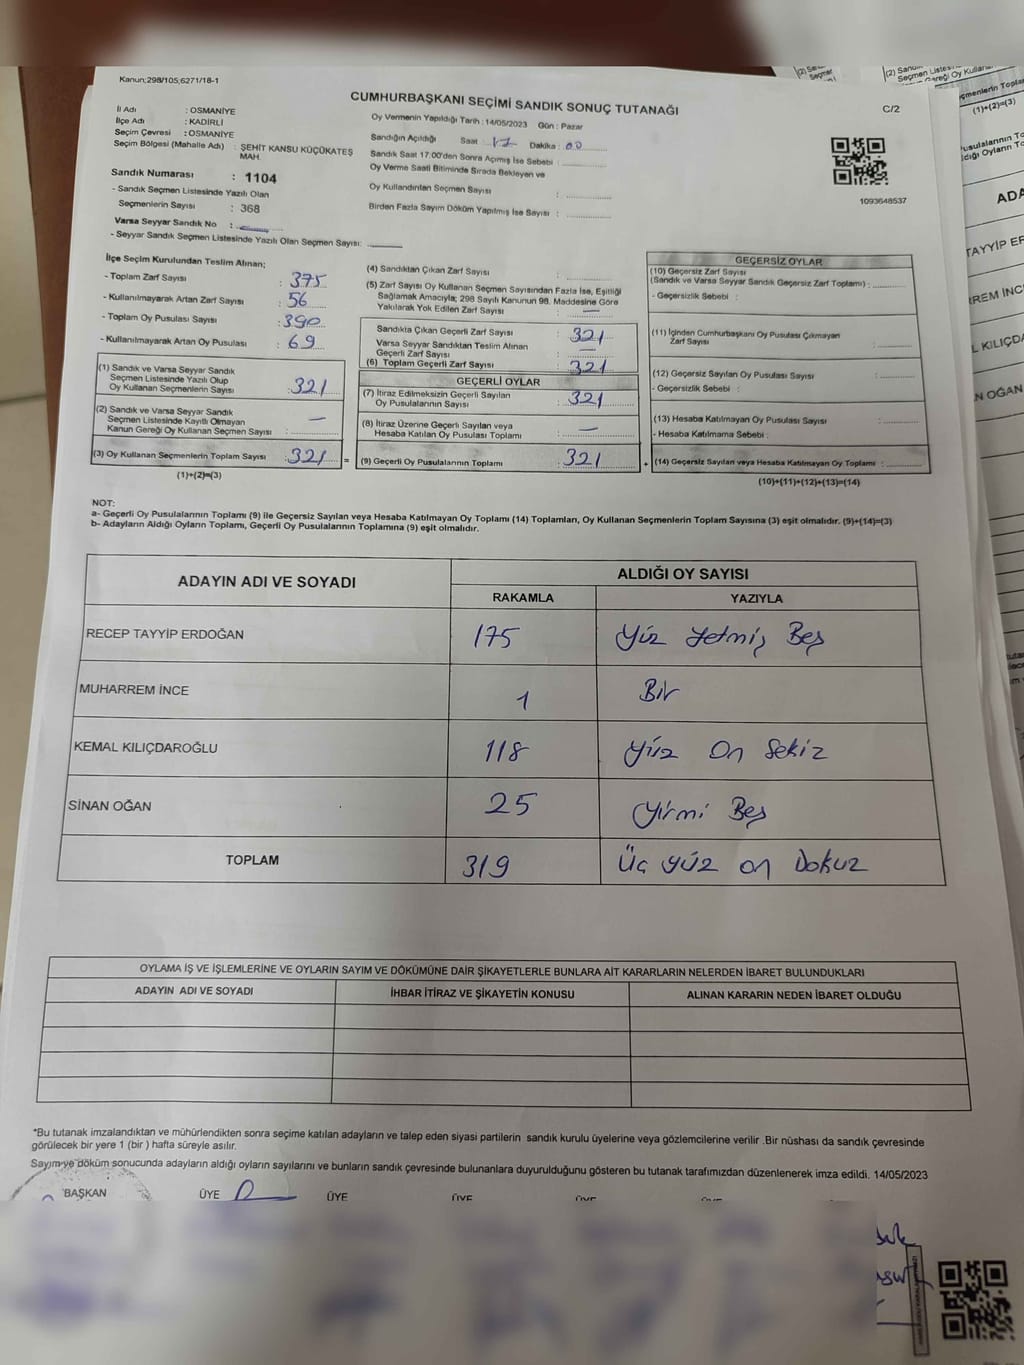 Kanun;298/105;6271/18-1
CUMHURBAŞKANI SEÇİMİ SANDIK SONUÇ TUTANAĞI
C/2
İl Adı : OSMANİYE
İlçe Adı : KADİRLİ
Seçim Çevresi : OSMANİYE
Seçim Bölgesi (Mahalle Adı) : ŞEHİT KANSU KÜÇÜKATEŞ
MAH.
Sandık Numarası : 1104
- Sandık Seçmen Listesinde Yazılı Olan
Seçmenlerin Sayısı : 368
Varsa Seyyar Sandık No :
- Seyyar Sandık Seçmen Listesinde Yazılı Olan Seçmen Sayısı:
Oy Vermenin Yapıldığı Tarih : 14/05/2023 Gün : Pazar
Sandığın Açıldığı Saat 17 Dakika : 00
Sandık Saat 17:00'den Sonra Açımış İse Sebebi :
Oy Verme Saati Bitiminde Sırada Bekleyen ve
Oy Kullandırılan Seçmen Sayısı :
Birden Fazla Sayım Döküm Yapılmış İse Sayısı :
1093648537
İlçe Seçim Kurulundan Teslim Alınan;
- Toplam Zarf Sayısı : 375
- Kullanılmayarak Artan Zarf Sayısı : 56
- Toplam Oy Pusulası Sayısı : 390
- Kullanılmayarak Artan Oy Pusulası : 69
(1) Sandık ve Varsa Seyyar Sandık
Seçmen Listesinde Yazılı Olup
Oy Kullanan Seçmenlerin Sayısı : 321
(2) Sandık ve Varsa Seyyar Sandık
Seçmen Listesinde Kayıtlı Olmayan
Kanun Gereği Oy Kullanan Seçmen Sayısı : —
(3) Oy Kullanan Seçmenlerin Toplam Sayısı : 321 =
(1)+(2)=(3)
(4) Sandıktan Çıkan Zarf Sayısı :
(5) Zarf Sayısı Oy Kullanan Seçmen Sayısından Fazla İse, Eşitliği
Sağlamak Amacıyla; 298 Sayılı Kanunun 98. Maddesine Göre
Yakılarak Yok Edilen Zarf Sayısı : —
Sandıkta Çıkan Geçerli Zarf Sayısı : 321
Varsa Seyyar Sandıktan Teslim Alınan
Geçerli Zarf Sayısı : —
(6) Toplam Geçerli Zarf Sayısı : 321
GEÇERLİ OYLAR
(7) İtiraz Edilmeksizin Geçerli Sayılan
Oy Pusulalarının Sayısı : 321
(8) İtiraz Üzerine Geçerli Sayılan veya
Hesaba Katılan Oy Pusulası Toplamı : —
(9) Geçerli Oy Pusulalarının Toplamı : 321 +
GEÇERSİZ OYLAR
(10) Geçersiz Zarf Sayısı
(Sandık ve Varsa Seyyar Sandık Geçersiz Zarf Toplamı) :
- Geçersizlik Sebebi :
(11) İçinden Cumhurbaşkanı Oy Pusulası Çıkmayan
Zarf Sayısı :
(12) Geçersiz Sayılan Oy Pusulası Sayısı :
- Geçersizlik Sebebi :
(13) Hesaba Katılmayan Oy Pusulası Sayısı :
- Hesaba Katılmama Sebebi :
(14) Geçersiz Sayılan veya Hesaba Katılmayan Oy Toplamı :
(10)+(11)+(12)+(13)=(14)
NOT:
a- Geçerli Oy Pusulalarının Toplamı (9) ile Geçersiz Sayılan veya Hesaba Katılmayan Oy Toplamı (14) Toplamları, Oy Kullanan Seçmenlerin Toplam Sayısına (3) eşit olmalıdır. (9)+(14)=(3)
b- Adayların Aldığı Oyların Toplamı, Geçerli Oy Pusulalarının Toplamına (9) eşit olmalıdır.
ADAYIN ADI VE SOYADI ALDIĞI OY SAYISI
RAKAMLA YAZIYLA
RECEP TAYYİP ERDOĞAN 175 Yüz Yetmiş Beş
MUHARREM İNCE 1 Bir
KEMAL KILIÇDAROĞLU 118 Yüz On Sekiz
SİNAN OĞAN 25 Yirmi Beş
TOPLAM 319 Üç yüz on Dokuz
OYLAMA İŞ VE İŞLEMLERİNE VE OYLARIN SAYIM VE DÖKÜMÜNE DAİR ŞİKAYETLERLE BUNLARA AİT KARARLARIN NELERDEN İBARET BULUNDUKLARI
ADAYIN ADI VE SOYADI İHBAR İTİRAZ VE ŞİKAYETİN KONUSU ALINAN KARARIN NEDEN İBARET OLDUĞU
*Bu tutanak imzalandıktan ve mühürlendikten sonra seçime katılan adayların ve talep eden siyasi partilerin sandık kurulu üyelerine veya gözlemcilerine verilir .Bir nüshası da sandık çevresinde
görülecek bir yere 1 (bir ) hafta süreyle asılır.
Sayım ve döküm sonucunda adayların aldığı oyların sayılarını ve bunların sandık çevresinde bulunanlara duyurulduğunu gösteren bu tutanak tarafımızdan düzenlenerek imza edildi. 14/05/2023
BAŞKAN ÜYE ÜYE ÜYE ÜYE ÜYE